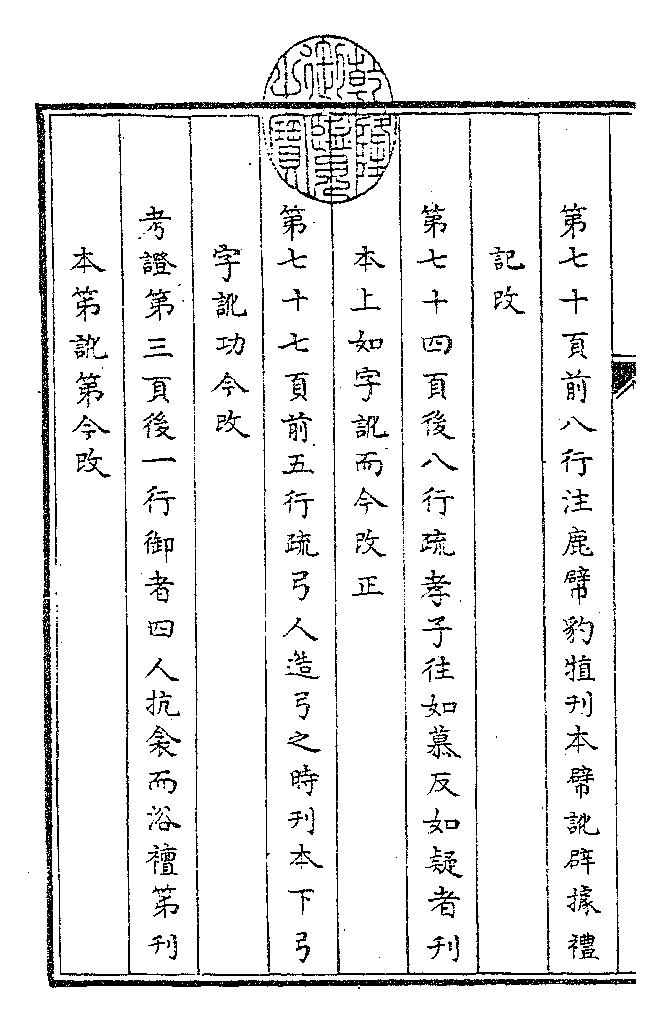 第七十頁前八行注鹿幦豹犆刊本幦訛辟據禮
記改
第七十四頁後八行疏孝子往如慕反如疑者刊
本上如字訛而今改正
第七十七頁前五行疏弓人造弓之時刊本下弓
字訛功今改
考證第三頁後一行御者四人抗衾而浴襢第刊
本第訛第今改
乾隆御覽之寶